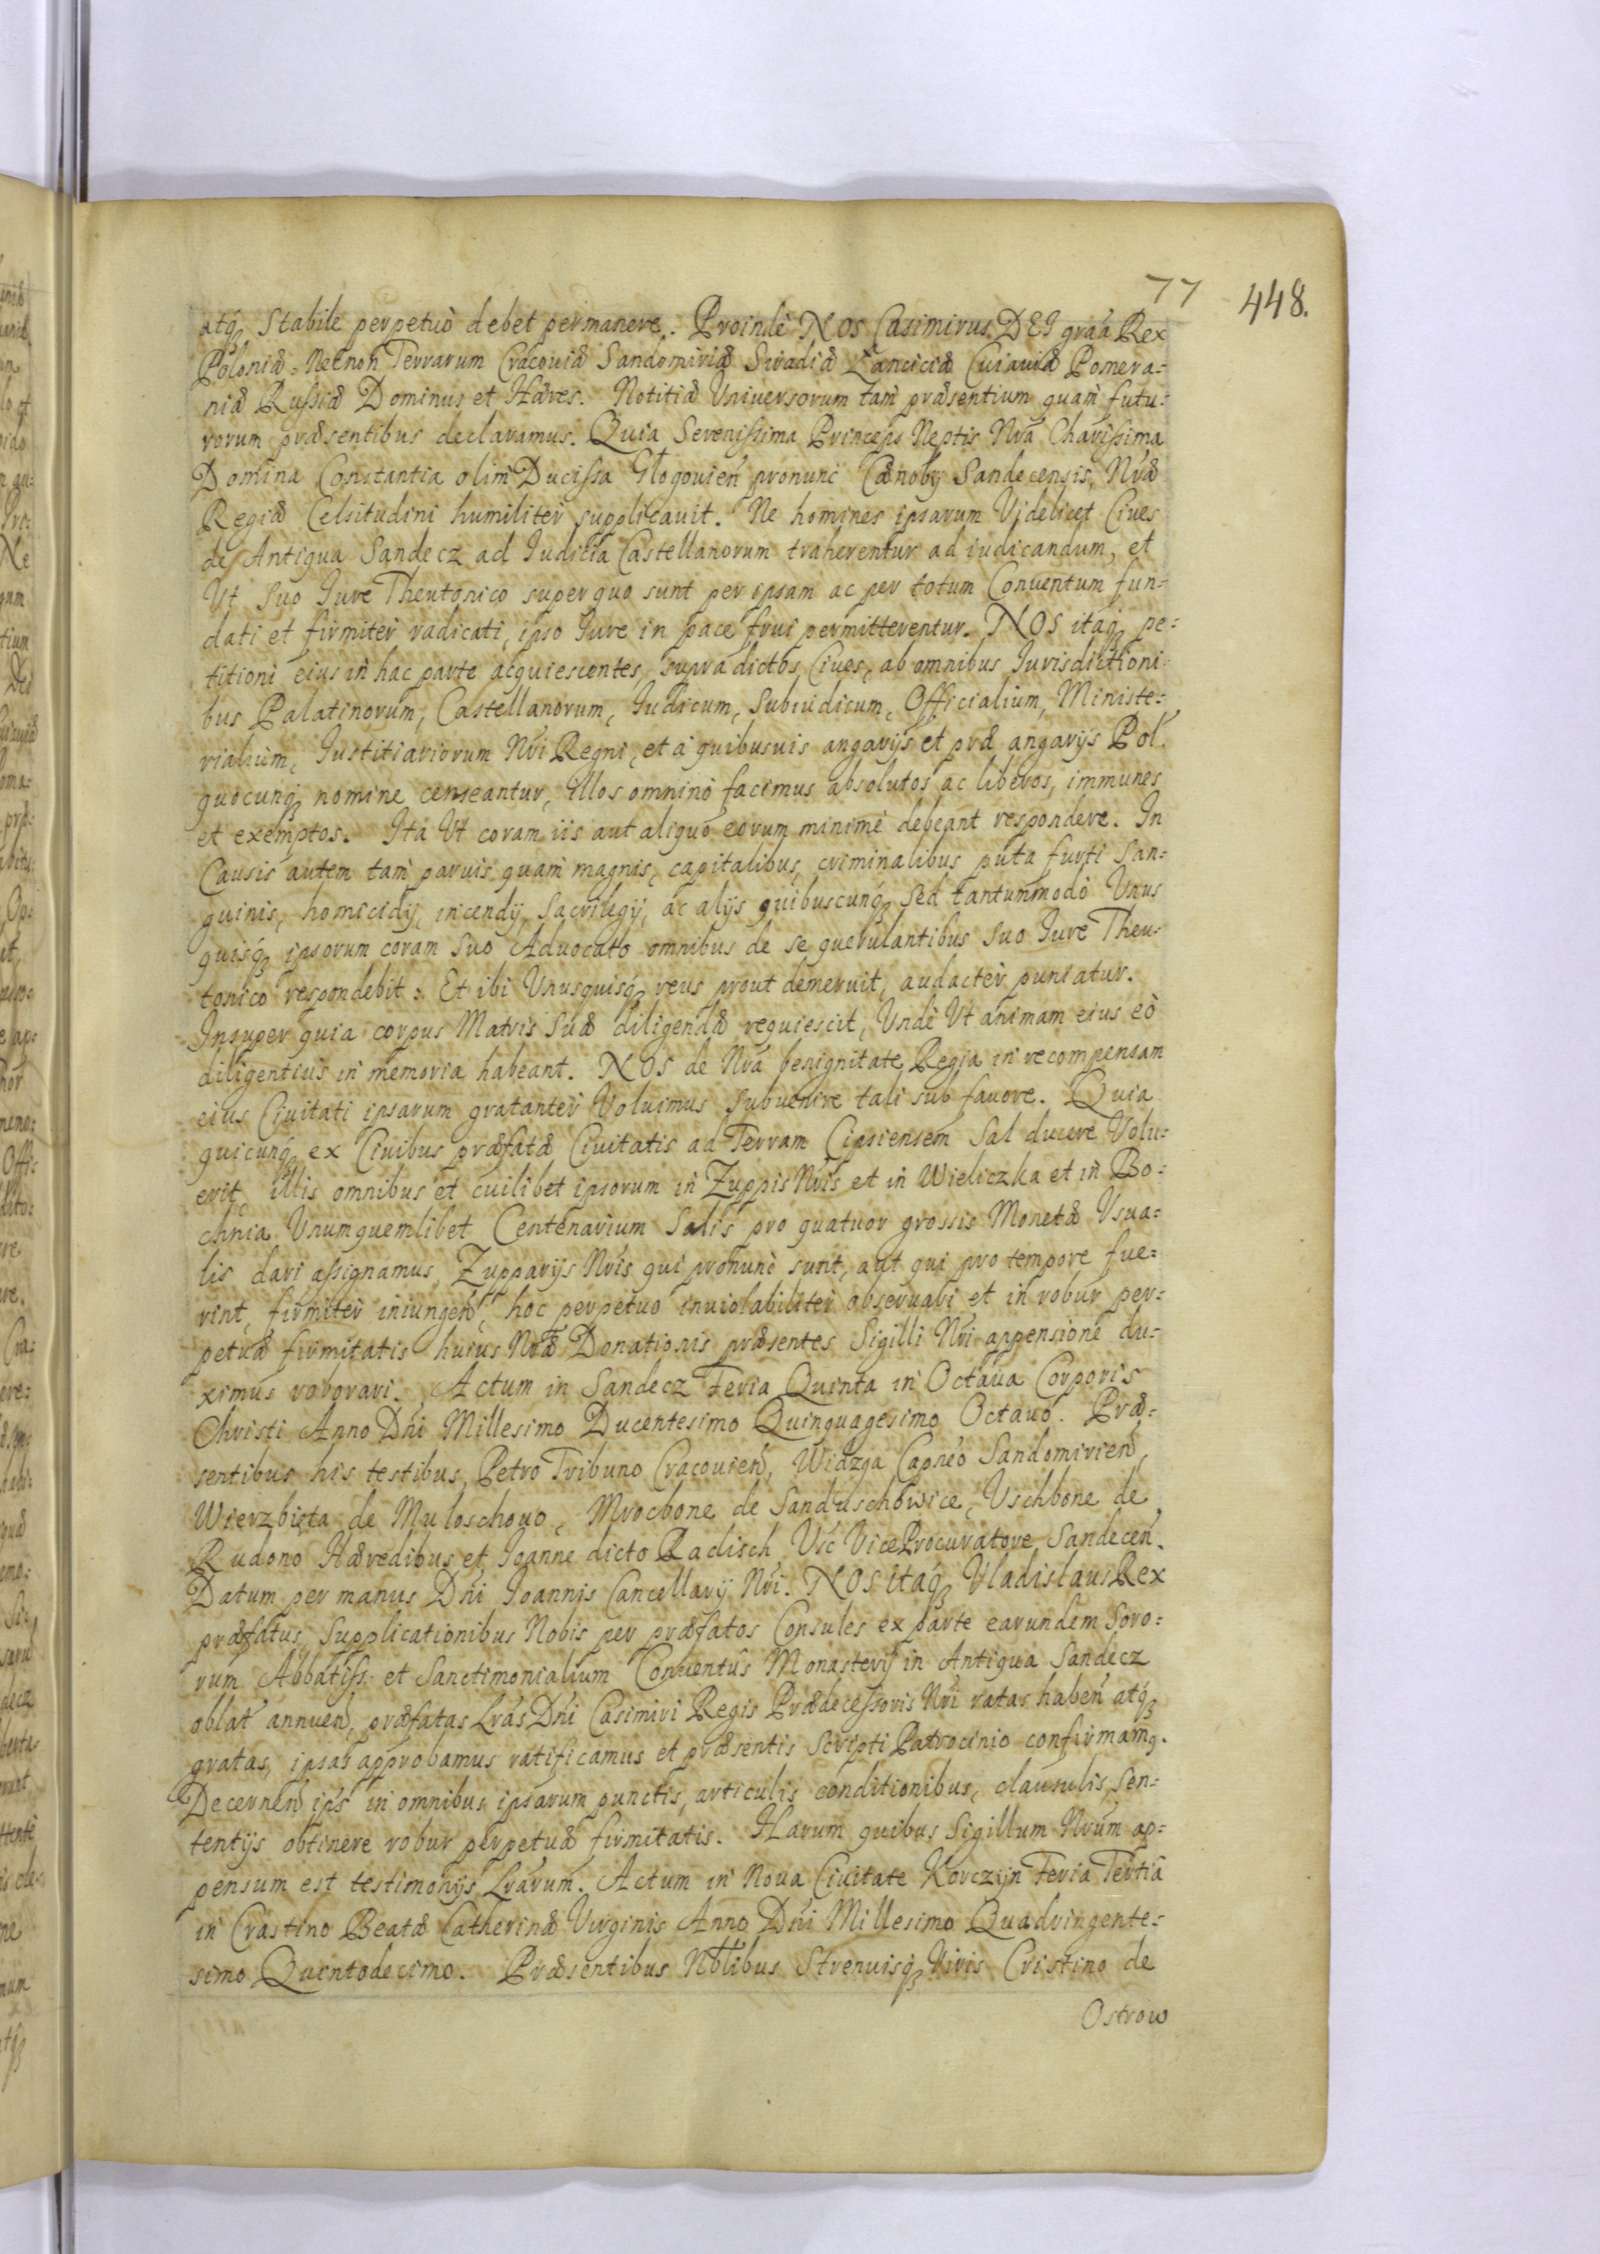 77 448.
atq₃ Stabile perpetuò debet permanere. Proindè NOS Casimirus DEI grãa Rex
Poloniæ. Necnon Terrarum Cracouiæ Sandomiriæ Siradiæ Lanciciæ Cuiauiæ Pomera-
niæ Russiæ Dominus et Hæres. Notitiæ Vniuersorum tam præsentium quam futu-
rorum præsentibus declaramus. Quia Serenissima Princeps Neptis Nrã Charissima
Domina Constantia olim Ducissa Glogouień pronunc Cænobÿ Sandecensis, Nræ
Regiæ Celsitudini humilitèr supplicauit. Ne homines ipsarum Videlicet Ciues
de Antiqua Sandecz ad Iudicia Castellanorum traherentur ad iudicandum, et
Vt Suo Iure Theutonico super quo sunt per ipsam ac per totum Conuentum fun-
dati et firmitèr radicati, ipso Iure in pace frui permitterentur. NOS itaq₃ pe-
titioni eius in hac parte acquiescentes, supradictos Ciues, ab omnibus Iurisdictioni-
bus Palatinorum, Castellanorum, Iudicum, Subiudicum, Officialium, Ministe-
rialium, Iustitiariorum Nri Regni, et à quibusuis angarijs et præangarijs Pol.
quocunq₃ nomine censeantur, illos omninò facimus absolutos ac liberos, immunes
et exemptos. Ita Vt coram iis aut aliquo eorum minimè debeant respondere. In
Causis autem tam paruis quam magnis, capitalibus, criminalibus puta furti San-
guinis, homicidÿ, incendÿ, Sacrilegÿ, ac alÿs quibuscunq₃ Sed tantummodò Vnus
quisq₃ ipsorum coram Suo Aduocato omnibus de se querulantibus Suo Iure Theu-
tonico respondebit: Et ibi Vnusquisq₃ reus prout demeruit, audactèr puniatur.
Insuper quia corpus Matris Suæ diligendæ requiescit, Vndè Vt animam eius eò
diligentiùs in memoria habeant. NOS de Nrã benignitate Regia in recompensam
eius Ciuitati ipsarum gratantèr Voluimus Subuenire tali sub fauore. Quia
quicunq₃ ex Ciuibus præfatæ Ciuitatis ad Terram Cipsiensem Sal ducere Volu-
erit, illis omnibus et cuilibet ipsorum in Zuppis Nris et in Wieliczka et in Bo-
chnia Vnumquemlibet Centenarium Salis pro quatuor grossis Monetæ Vsua-
lis dari assignamus, Zupparijs Nris qui pronunc sunt, aut qui pro tempore fue-
rint, firmitèr iniungeñ, hoc perpetuò inuiolabilitèr obseruari et in robur per-
petuæ firmitatis huius Nræ Donationis præsentes Sigilli Nri appensione du-
ximus roborari. Actum in Sandecz Feria Quinta in Octaua Corporis
Christi Anno Dñi Millesimo Ducentesimo Quinquagesimo Octauo. Præ-
sentibus his testibus, Petro Tribuno Cracouień, Widzga Capneo Sandomirień,
Wierzbięta de Muloschouo, Mrocbone de Sanduschowice, Vschbone de
Rudono Hæredibus et Ioanne dicto Radisch Vrc ViceProcuratore Sandeceń.
Datum per manus Dñi Ioannis Cancellarÿ Nri. NOS itaq₃ Vladislaus Rex
præfatus, Supplicationibus Nobis per præfatos Consules ex parte earundem Soro-
rum Abbatiss. et Sanctimonialium Conuentûs Monasterÿ in Antiqua Sandecz
oblat annueñ, præfatas Lrãs Dñi Casimiri Regis Prædecessoris Nri ratas habeñ atq₃
gratas, ipsas approbamus ratificamus et præsentis Scripti Patrocinio confirmamꝰ.
Decerneñ ips in omnibus ipsarum punctis, articulis conditionibus, clausulis, sen-
tentijs obtinere robur perpetuæ firmitatis. Harum quibus Sigillum Nrum ap-
pensum est testimonijs Lrarum. Actum in Noua Ciuitate Korczyn Feria Tertia
in Crastino Beatæ Catherinæ Virginis Anno Dñi Millesimo Quadringente-
simo Quintodecimo. Præsentibus Nobilibus Strenuisq₃ Viris Cristino de
Ostrow